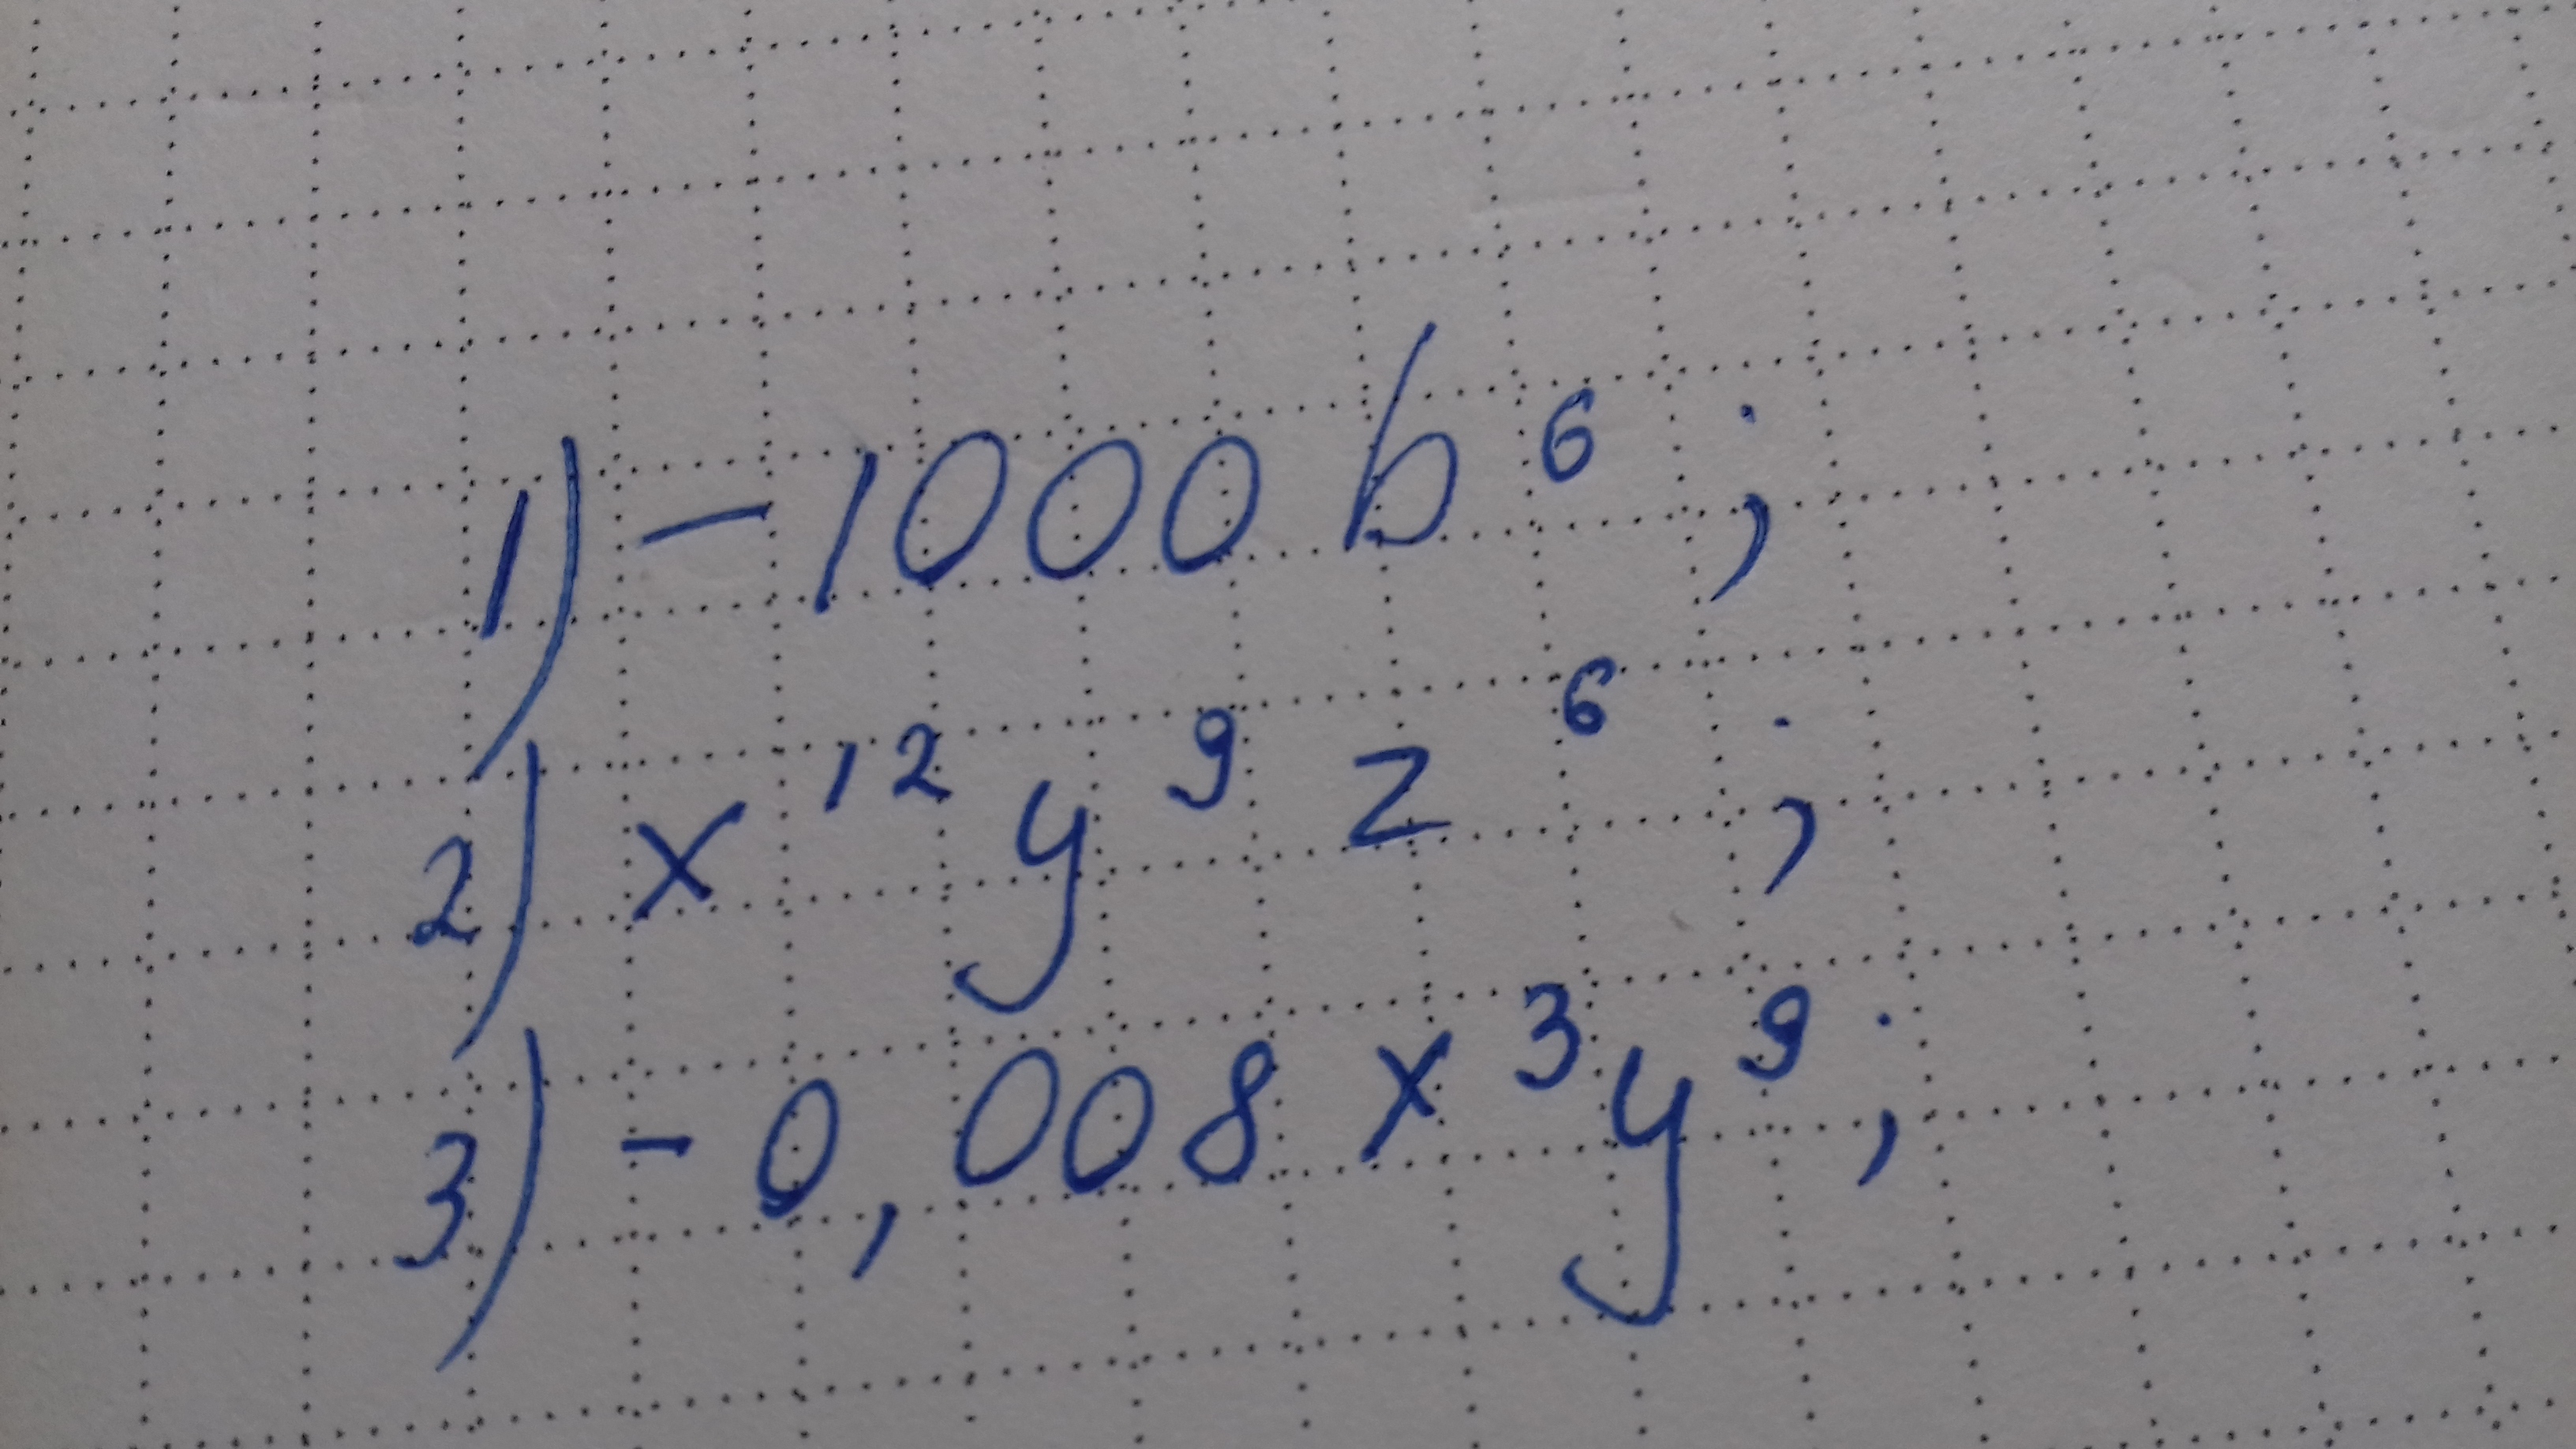 1) -1000 b⁶;
2) x¹²y⁹z⁶;
3) -0,008x³y⁹;